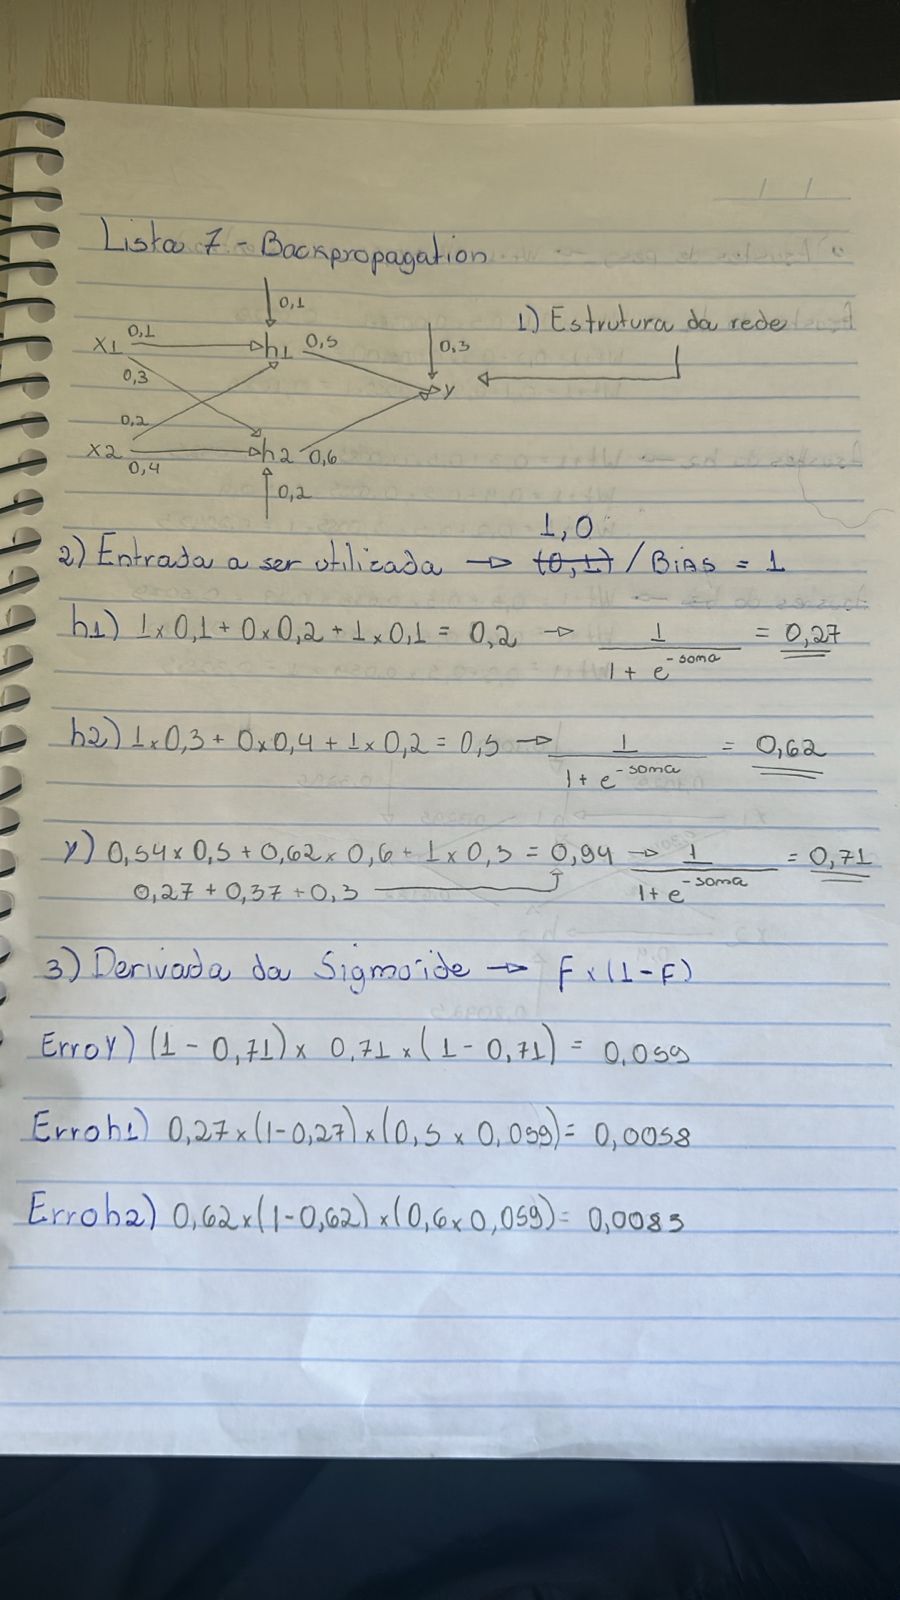 Lista 7 - Backpropagation
0,1
1) Estrutura da rede
x1 0,1 h1 0,5 0,3
0,3 y
0,2
x2 0,4 h2 0,6
0,2
1,0
2) Entrada a ser utilizada → (0,1) / BiAS = 1
h1) 1x0,1 + 0x0,2 + 1x0,1 = 0,2 → 1/(1 + e^-soma) = 0,27
h2) 1x0,3 + 0x0,4 + 1x0,2 = 0,5 → 1/(1 + e^-soma) = 0,62
y) 0,54x0,5 + 0,62x0,6 + 1x0,3 = 0,94 → 1/(1 + e^-soma) = 0,71
0,27 + 0,37 + 0,3
3) Derivada da Sigmoide → F x (1 - F)
Erro Y) (1 - 0,71) x 0,71 x (1 - 0,71) = 0,059
Erro h1) 0,27 x (1 - 0,27) x (0,5 x 0,059) = 0,0058
Erro h2) 0,62 x (1 - 0,62) x (0,6 x 0,059) = 0,0083